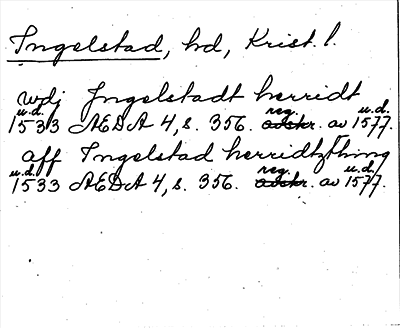 Ingelstad, hd, Krist. l.
wdj Jngelstadt herridt
u.d. reg. u.d.
1533 AEDA 4, s. 356. avskr. av 1577.
aff Ingelstad herridtzthing
u.d. reg.
1533 AEDA 4, s. 356. avskr. av 1577.